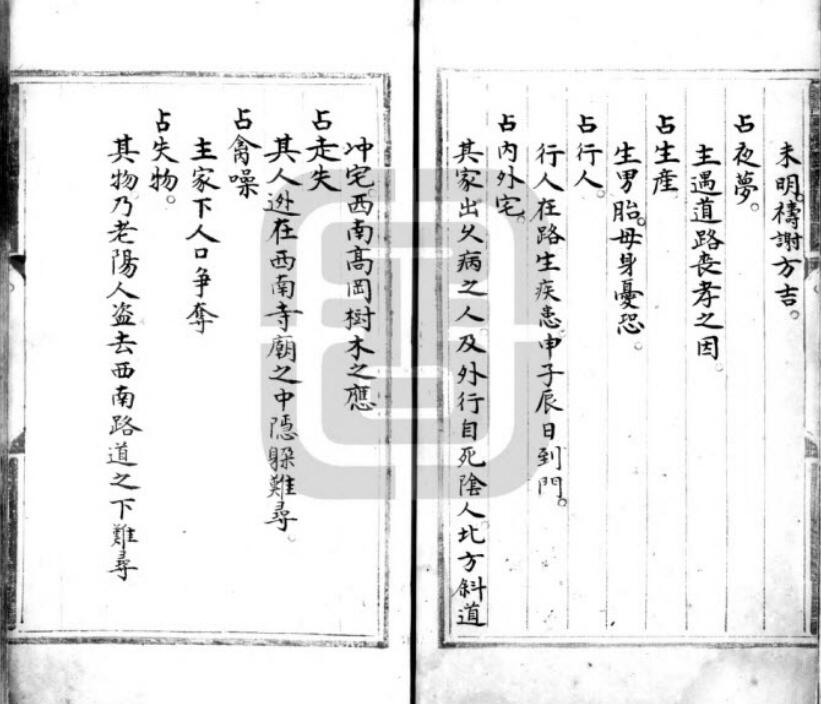 未明。禱謝方吉。
占夜夢。
主遇道路喪孝之因。
占生產
生男胎。母身憂恐。
占行人。
行人在路生疾患。申子辰日到門。
占內外宅。
其家出久病之人。及外行自死陰人。北方斜道
冲宅。西南高岡樹木之應
占走失
其人迯在西南寺廟之中隱躲難尋。
占禽噪
主家下人口争奪
占失物。
其物乃老陽人盗去西南路道之下難尋